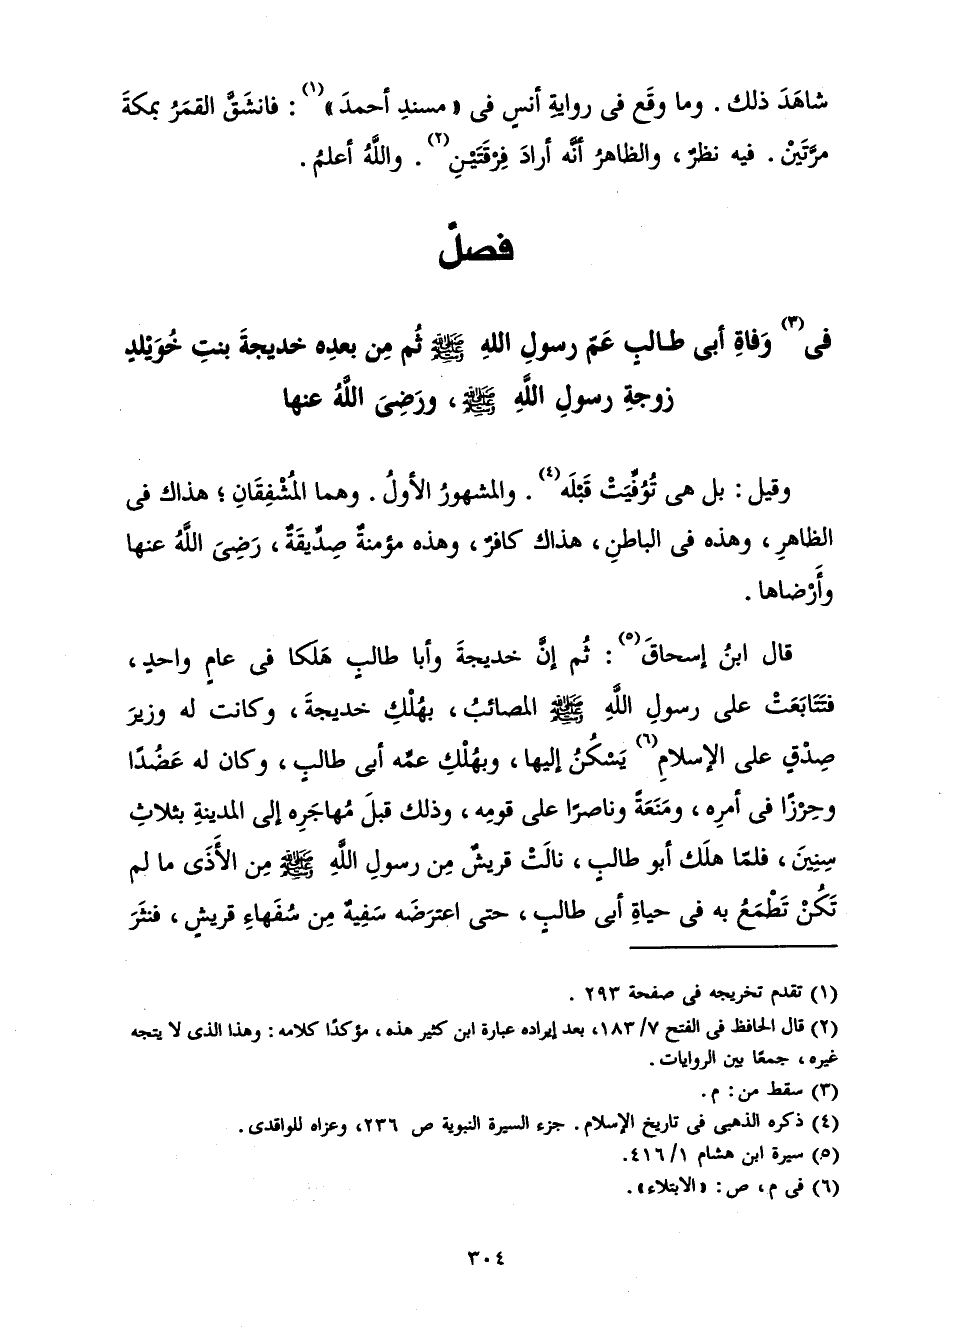 شاهَدَ ذلك . وما وقَع فى روايةِ أنسٍ فى «مسندِ أحمدَ»(١) : فانشَقَّ القمَرُ بمكةَ
مرَّتَيْنِ . فيه نظرٌ ، والظاهرُ أنَّه أرادَ فِرْقَتَيْنِ(٢) . واللَّهُ أعلمُ .
فصلٌ
فى(٣) وَفاةِ أبى طالبٍ عَمِّ رسولِ اللهِ ﷺ ثُم مِن بعدِه خديجةَ بنتِ خُوَيْلدٍ
زوجةِ رسولِ اللَّهِ ﷺ ، ورَضِىَ اللَّهُ عنها
وقيل : بل هى تُوُفِّيَتْ قَبْلَه(٤) . والمشهورُ الأولُ . وهما المُشْفِقَانِ ؛ هذاك فى
الظاهرِ ، وهذه فى الباطنِ ، هذاك كافرٌ ، وهذه مؤمنةٌ صِدِّيقةٌ ، رَضِىَ اللَّهُ عنها
وأَرْضاها .
قال ابنُ إسحاقَ(٥) : ثُم إنَّ خديجةَ وأبا طالبٍ هَلَكا فى عامٍ واحدٍ ،
فتَتَابَعَتْ على رسولِ اللَّهِ ﷺ المصائبُ ، بهُلْكِ خديجةَ ، وكانت له وزيرَ
صِدْقٍ على الإسلامِ(٦) يَسْكُنُ إليها ، وبهُلْكِ عمِّه أبى طالبٍ ، وكان له عَضُدًا
وحِرْزًا فى أمرِه ، ومَنَعَةً وناصرًا على قومِه ، وذلك قبلَ مُهاجَرِه إلى المدينةِ بثلاثِ
سِنِينَ ، فلمّا هلَك أبو طالبٍ ، نالَتْ قريشٌ مِن رسولِ اللَّهِ ﷺ مِن الأَذَى ما لم
تَكُنْ تَطْمَعُ به فى حياةِ أبى طالبٍ ، حتى اعترَضَه سَفِيهٌ مِن سُفَهاءِ قريشٍ ، فنثَرَ
(١) تقدم تخريجه فى صفحة ٢٩٣ .
(٢) قال الحافظ فى الفتح ٧/ ١٨٣، بعد إيراده عبارة ابن كثير هذه ، مؤكدًا كلامه : وهذا الذى لا يتجه
غيره ، جمعًا بين الروايات .
(٣) سقط من : م .
(٤) ذكره الذهبى فى تاريخ الإسلام . جزء السيرة النبوية ص ٢٣٦، وعزاه للواقدى .
(٥) سيرة ابن هشام ١/ ٤١٦.
(٦) فى م ، ص : «الابتلاء» .
٣٠٤